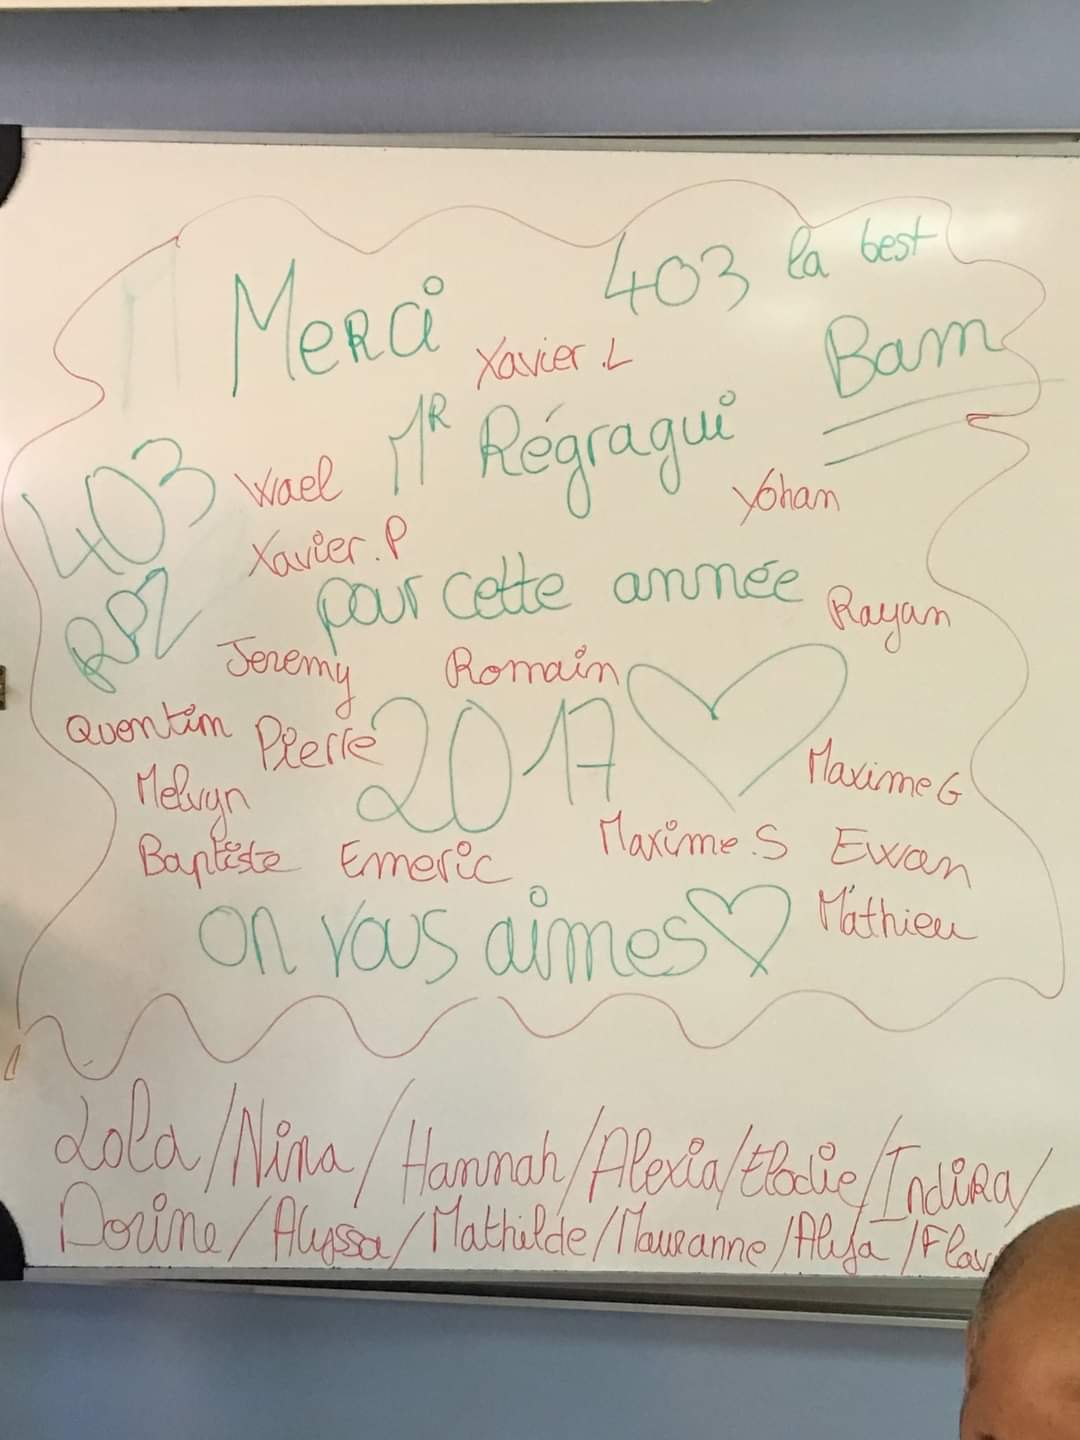 403 la best
Merci
Bam
Xavier.L
Mr Régragui
403
Wael
Yohan
Xavier.P
pour cette année
RPZ
Rayan
Jeremy
Romain
Quentin
Pierre
2017
Maxime G
Melvyn
Maxime.S
Ewan
Baptiste
Emeric
Mathieu
on vous aimes
Lola/Nina/Hannah/Alexia/Elodie/Indira/
Dorine/Alyssa/Mathilde/Mauranne/